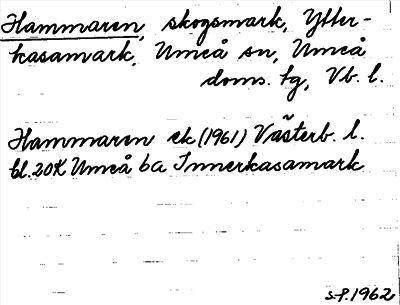 Hammaren, skogsmark, Ytter-
kasamark, Umeå sn, Umeå
doms. tg, Vb. l.
Hammaren ek (1961) Västerb. l.
bl. 20K Umeå ba Innerkasamark
S-P. 1962